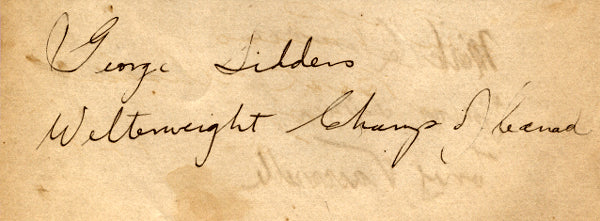 George Fidders
Welterweight Champ of Canad